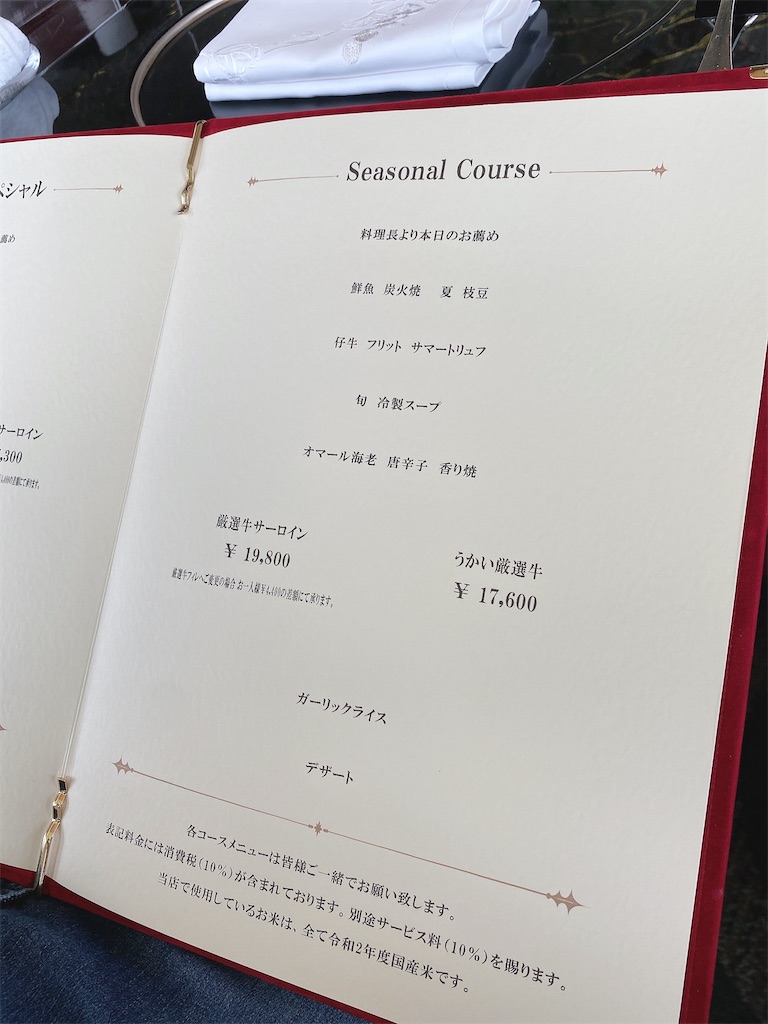 ペシャル
薦め
サーロイン
,300
Seasonal Course
料理長より本日のお薦め
鮮魚 炭火焼 夏 枝豆
仔牛 フリット サマートリュフ
旬 冷製スープ
オマール海老 唐辛子 香り焼
厳選牛サーロイン
¥ 19,800
厳選牛フィレへご変更の場合 お一人様¥4,400の差額にて承ります。
うかい厳選牛
¥ 17,600
ガーリックライス
デザート
各コースメニューは皆様ご一緒でお願い致します。
表記料金には消費税(10%)が含まれております。別途サービス料(10%)を賜ります。
当店で使用しているお米は、全て令和2年度国産米です。